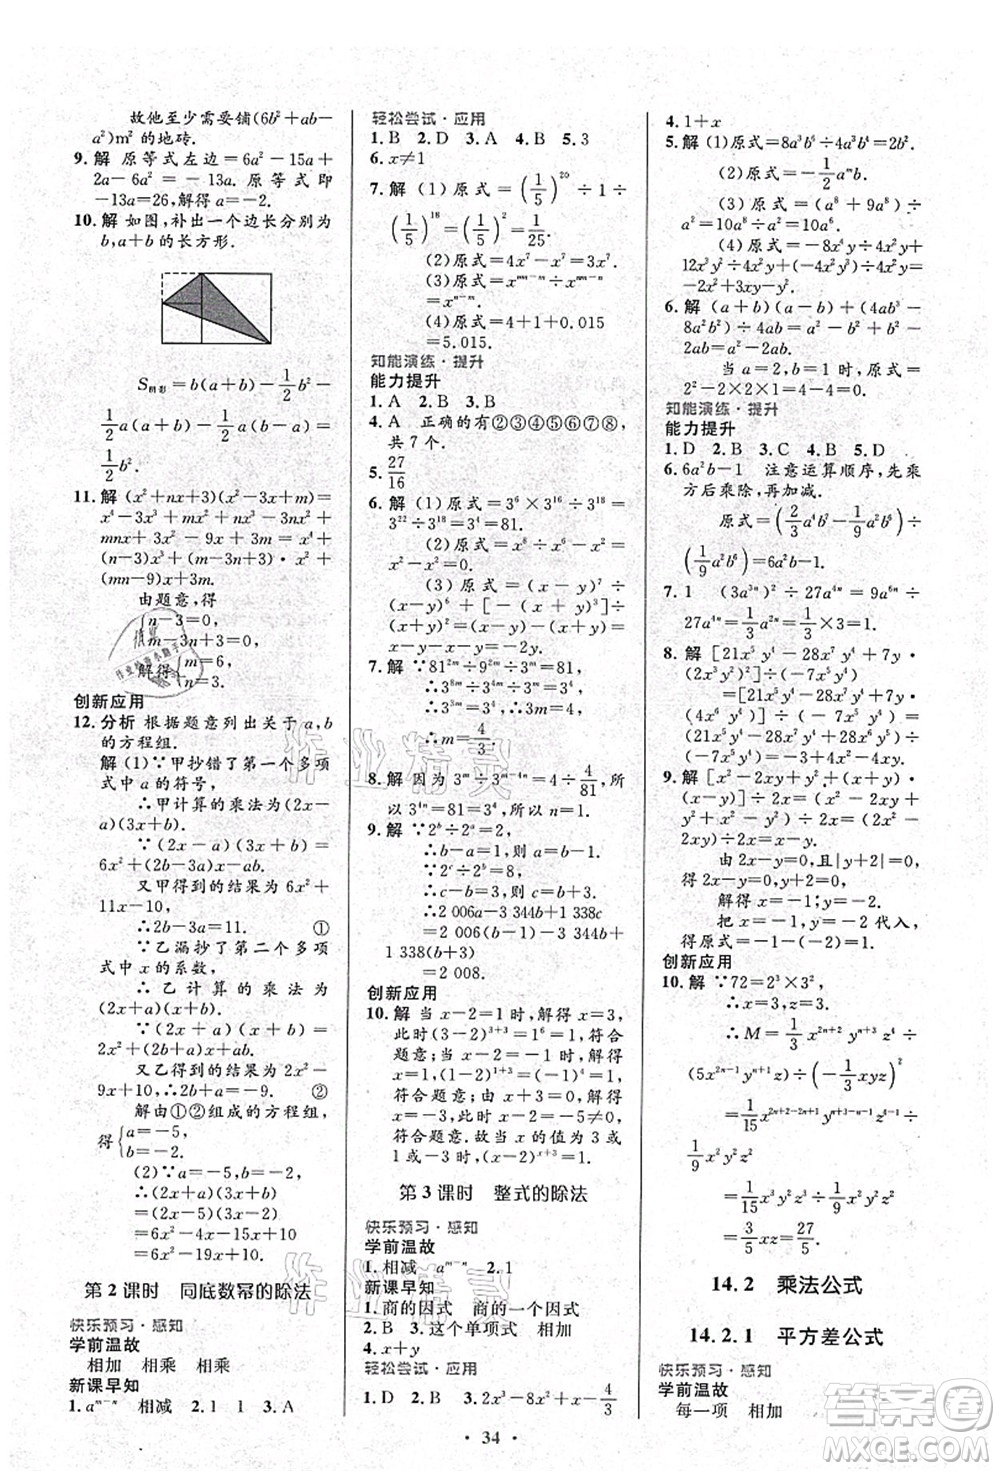 故他至少需要铺(6b²+ab-
a²)m² 的地砖.
9. 解 原等式左边=6a²-15a+
2a-6a²=-13a. 原等式即
-13a=26,解得 a=-2.
10. 解 如图,补出一个边长分别为
b,a+b 的长方形.
S阴影=b(a+b)-1/2 b²-
1/2 a(a+b)-1/2 b(b-a)=
1/2 ab-1/2 a²+1/2 b².
11. 解 (x²+nx+3)(x²-3x+m)=
x⁴-3x³+mx²+nx³-3nx²+
mnx+3x²-9x+3m=x⁴+
(n-3)x³+(m-3n+3)x²+
(mn-9)x+3m.
由题意,得
{n-3=0,
m-3n+3=0.
解得{m=6,
n=3.
创新应用
12. 分析 根据题意列出关于 a,b
的方程组.
解 (1)∵甲抄错了第一个多项
式中 a 的符号,
∴甲计算的乘法为(2x-
a)(3x+b).
∴(2x-a)(3x+b)=
6x²+(2b-3a)x-ab.
又甲得到的结果为 6x²+
11x-10,
∴2b-3a=11. ①
∵乙漏抄了第二个多项
式中 x 的系数,
∴乙计算的乘法为
(2x+a)(x+b).
∴(2x+a)(x+b)=
2x²+(a+2b)x+ab.
又乙得到的结果为 2x²-
9x+10,∴a+2b=-9. ②
解由①②组成的方程组,
得{a=-5,
b=-2.
(2)∵a=-5,b=-2,
∴(2x+a)(3x+b)
=(2x-5)(3x-2)
=6x²-4x-15x+10
=6x²-19x+10.
第 2 课时 同底数幂的除法
快乐预习·感知
学前温故
相加 相乘 相乘
新课早知
1. aᵐ⁻ⁿ 相减 2. 1 1 3. A
轻松尝试·应用
1. B 2. D 3. A 4. B 5. 3
6. x≠1
7. 解 (1)原式=(1/5)²⁰÷1÷
(1/5)¹⁸=(1/5)²=1/25.
(2)原式=4x⁷-x⁷=3x⁷.
(3)原式=xᵐⁿ⁻ᵐ⁻ⁿ⁺ᵐⁿ
=xⁿ⁻ᵐ.
(4)原式=4+1+0.015
=5.015.
知能演练·提升
能力提升
1. A 2. B 3. B
4. A 正确的有②③④⑤⑥⑦⑧,
共 7 个.
5. 27/16
6. 解 (1)原式=3⁶×3¹⁶÷3¹⁸=
3²²÷3¹⁸=3⁴=81.
(2)原式=x⁶-x⁶=0.
(3)原式=(x-y)⁷÷
(x-y)⁶+[-(x-y)³]÷
(x-y)²=(x-y)-(x-y)=
x-y-x+y=0.
7. 解 ∵81²ᵐ÷9²ᵐ÷9ᵐ=81,
∴3⁸ᵐ÷3⁴ᵐ÷3²ᵐ=3⁴.
∴3²ᵐ÷3⁻ᵐ=3⁴,∴3m=4,
∴m=4/3.
8. 解 因为 3ᵐ÷3ⁿ=324÷4/81,所
以 3⁴ⁿ=81=3⁴,所以 n=1.
9. 解 ∵2ᵇ÷2ᵃ=6÷3=2,
∴b-a=1,a=b-1.
∵2ᶜ÷2ᵇ=8,
∴c-b=3,c=b+3.
∴2 006a-3 344b+1 338c
=2 006(b-1)-3 344b+
1 338(b+3)
=2 008.
创新应用
10. 解 当 x-2=1 时,解得 x=3,
此时(3-2)³⁺³=1⁶=1,符合
题意;当 x-2=-1 时,解得
x=1,此时(1-2)¹⁺³=1,
符合题意;当 x+3=0 时,解得
x=-3,此时 x-2=-5≠0,
符合题意.故当 x 的值为 3 或
1 或-3 时,(x-2)ˣ⁺³=1.
第 3 课时 整式的除法
快乐预习·感知
学前温故
1. 相减 aᵐ⁻ⁿ 2. 1
新课早知
1. 商的因式 商的一个因式
2. B 3. 这个单项式 相加
4. x+y
轻松尝试·应用
1. D 2. A 3. 2x³-8x²+x-4/3
4. 1+x
5. 解 (1)原式=8a³b⁶÷4a²b⁵=2ab.
(2)原式=-1/2 aᵐb.
(3)原式=(a⁸+9a⁸)÷
a²÷a⁰=10a⁸÷a²=10a⁶.
(4)原式=-8x⁴y÷4x²y+
12x³y²÷4x²y-4x²y³÷4x²y
=-2x²+3xy-y².
6. 解 (a+b)(a-b)+(4ab³-
8a²b²)÷4ab=a²-b²+b²-
2ab=a²-2ab.
当 a=2,b=1 时,原式=
2²-2×2×1=4-4=0.
知能演练·提升
能力提升
1. D 2. B 3. C 4. B 5. D
6. 6a²b-1 注意运算顺序,先乘
方后乘除,再加减.
原式=(2/3 a⁴b⁷-1/9 a²b⁶)÷
(1/9 a²b⁶)=6a²b-1.
7. 1 (3a³ⁿ)²÷27a⁴ⁿ=9a⁶ⁿ÷
27a⁴ⁿ=1/3 a²ⁿ=1/3×3=1.
8. 解 [21x⁵y⁴-28x⁷y⁴+7y·
(2x³y²)²]÷(-7x⁵y⁴)
=[21x⁵y⁴-28x⁷y⁴+7y·
(4x⁶y⁴)]÷(-7x⁵y⁴)=
(21x⁵y⁴-28x⁷y⁴+28x⁶y⁵)÷
(-7x⁵y⁴)=-3+4x²-4xy.
9. 解 [x²+4y²-(x²+4xy+
4y²)-2xy]÷4x=(-4xy-
2xy)÷4x=-3/2 y.
由 x-1=0,且|y+2|=0,
得 x=1,y=-2.
把 x=1,y=-2 代入,
得原式=-1-(-2)=1.
创新应用
10. 解 ∵72=2³×3²,
∴x=3,z=2.
∴M=1/3 x²ⁿ⁺² yⁿ⁺³ z⁴÷
(5x²ⁿ⁻¹ yⁿ⁺¹ z)÷(-1/3 xyz)²
=1/15 x²ⁿ⁺²⁻²ⁿ⁺¹ yⁿ⁺³⁻ⁿ⁻¹ z⁴⁻¹÷
1/9 x²y²z²
=1/15 x³y²z³÷1/9 x²y²z²
=3/5 xz=27/5.
14.2 乘法公式
14.2.1 平方差公式
快乐预习·感知
学前温故
每一项 相加
· 34 ·
答案圈
MXQE.COM